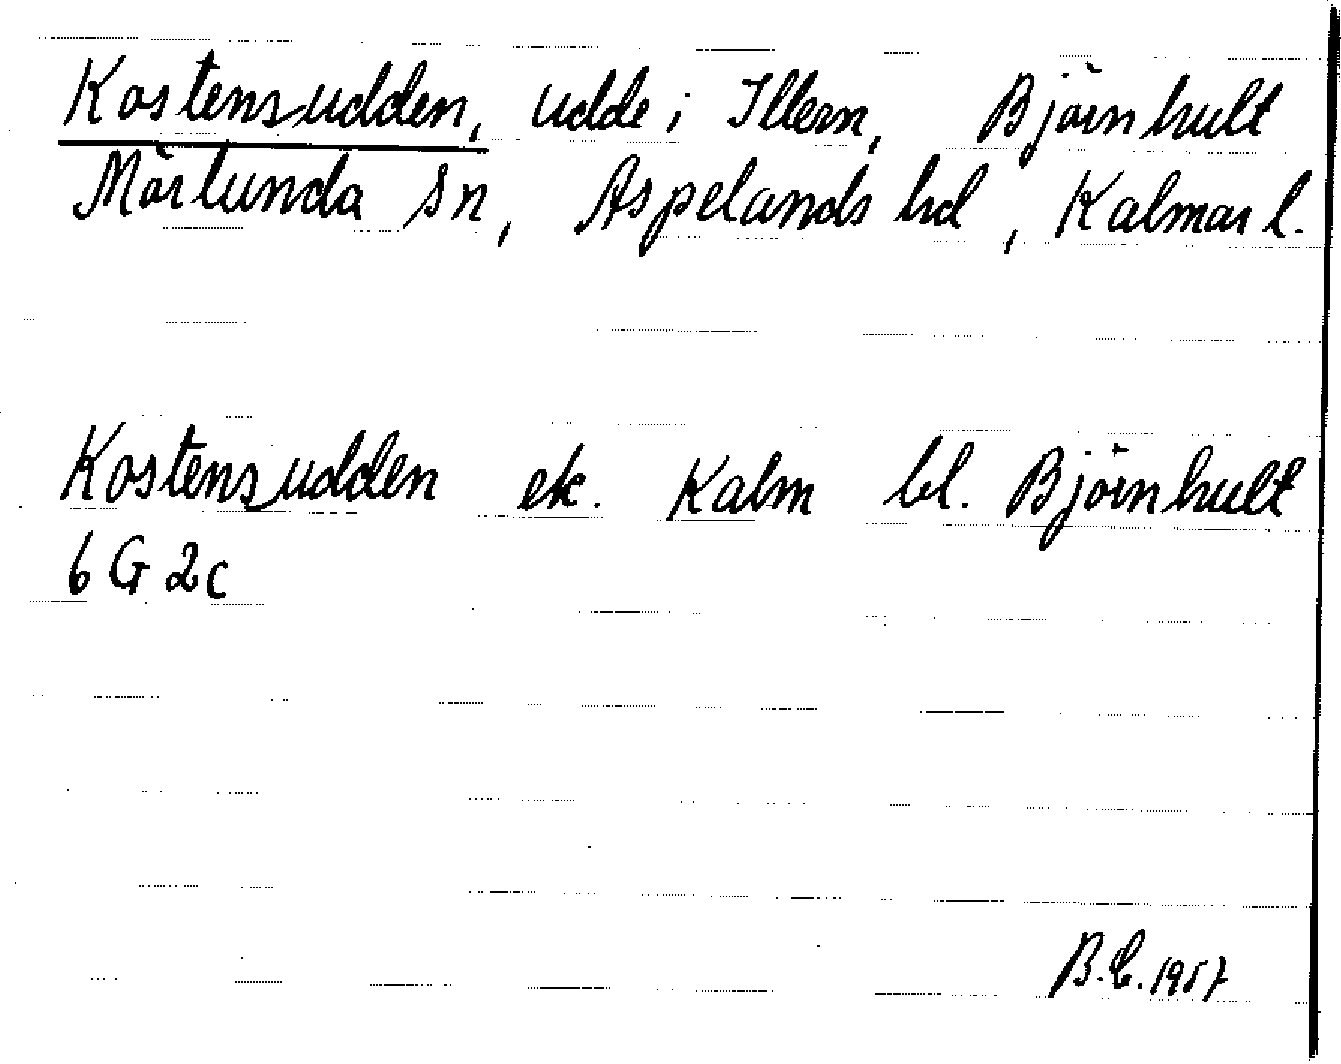 Kostensudden, udde i Illern, Björnhult
Mörlunda sn, Aspelands hd, Kalmar l.
Kostensudden ek. Kalm bl. Björnhult
6 G 2c
B.E. 1957